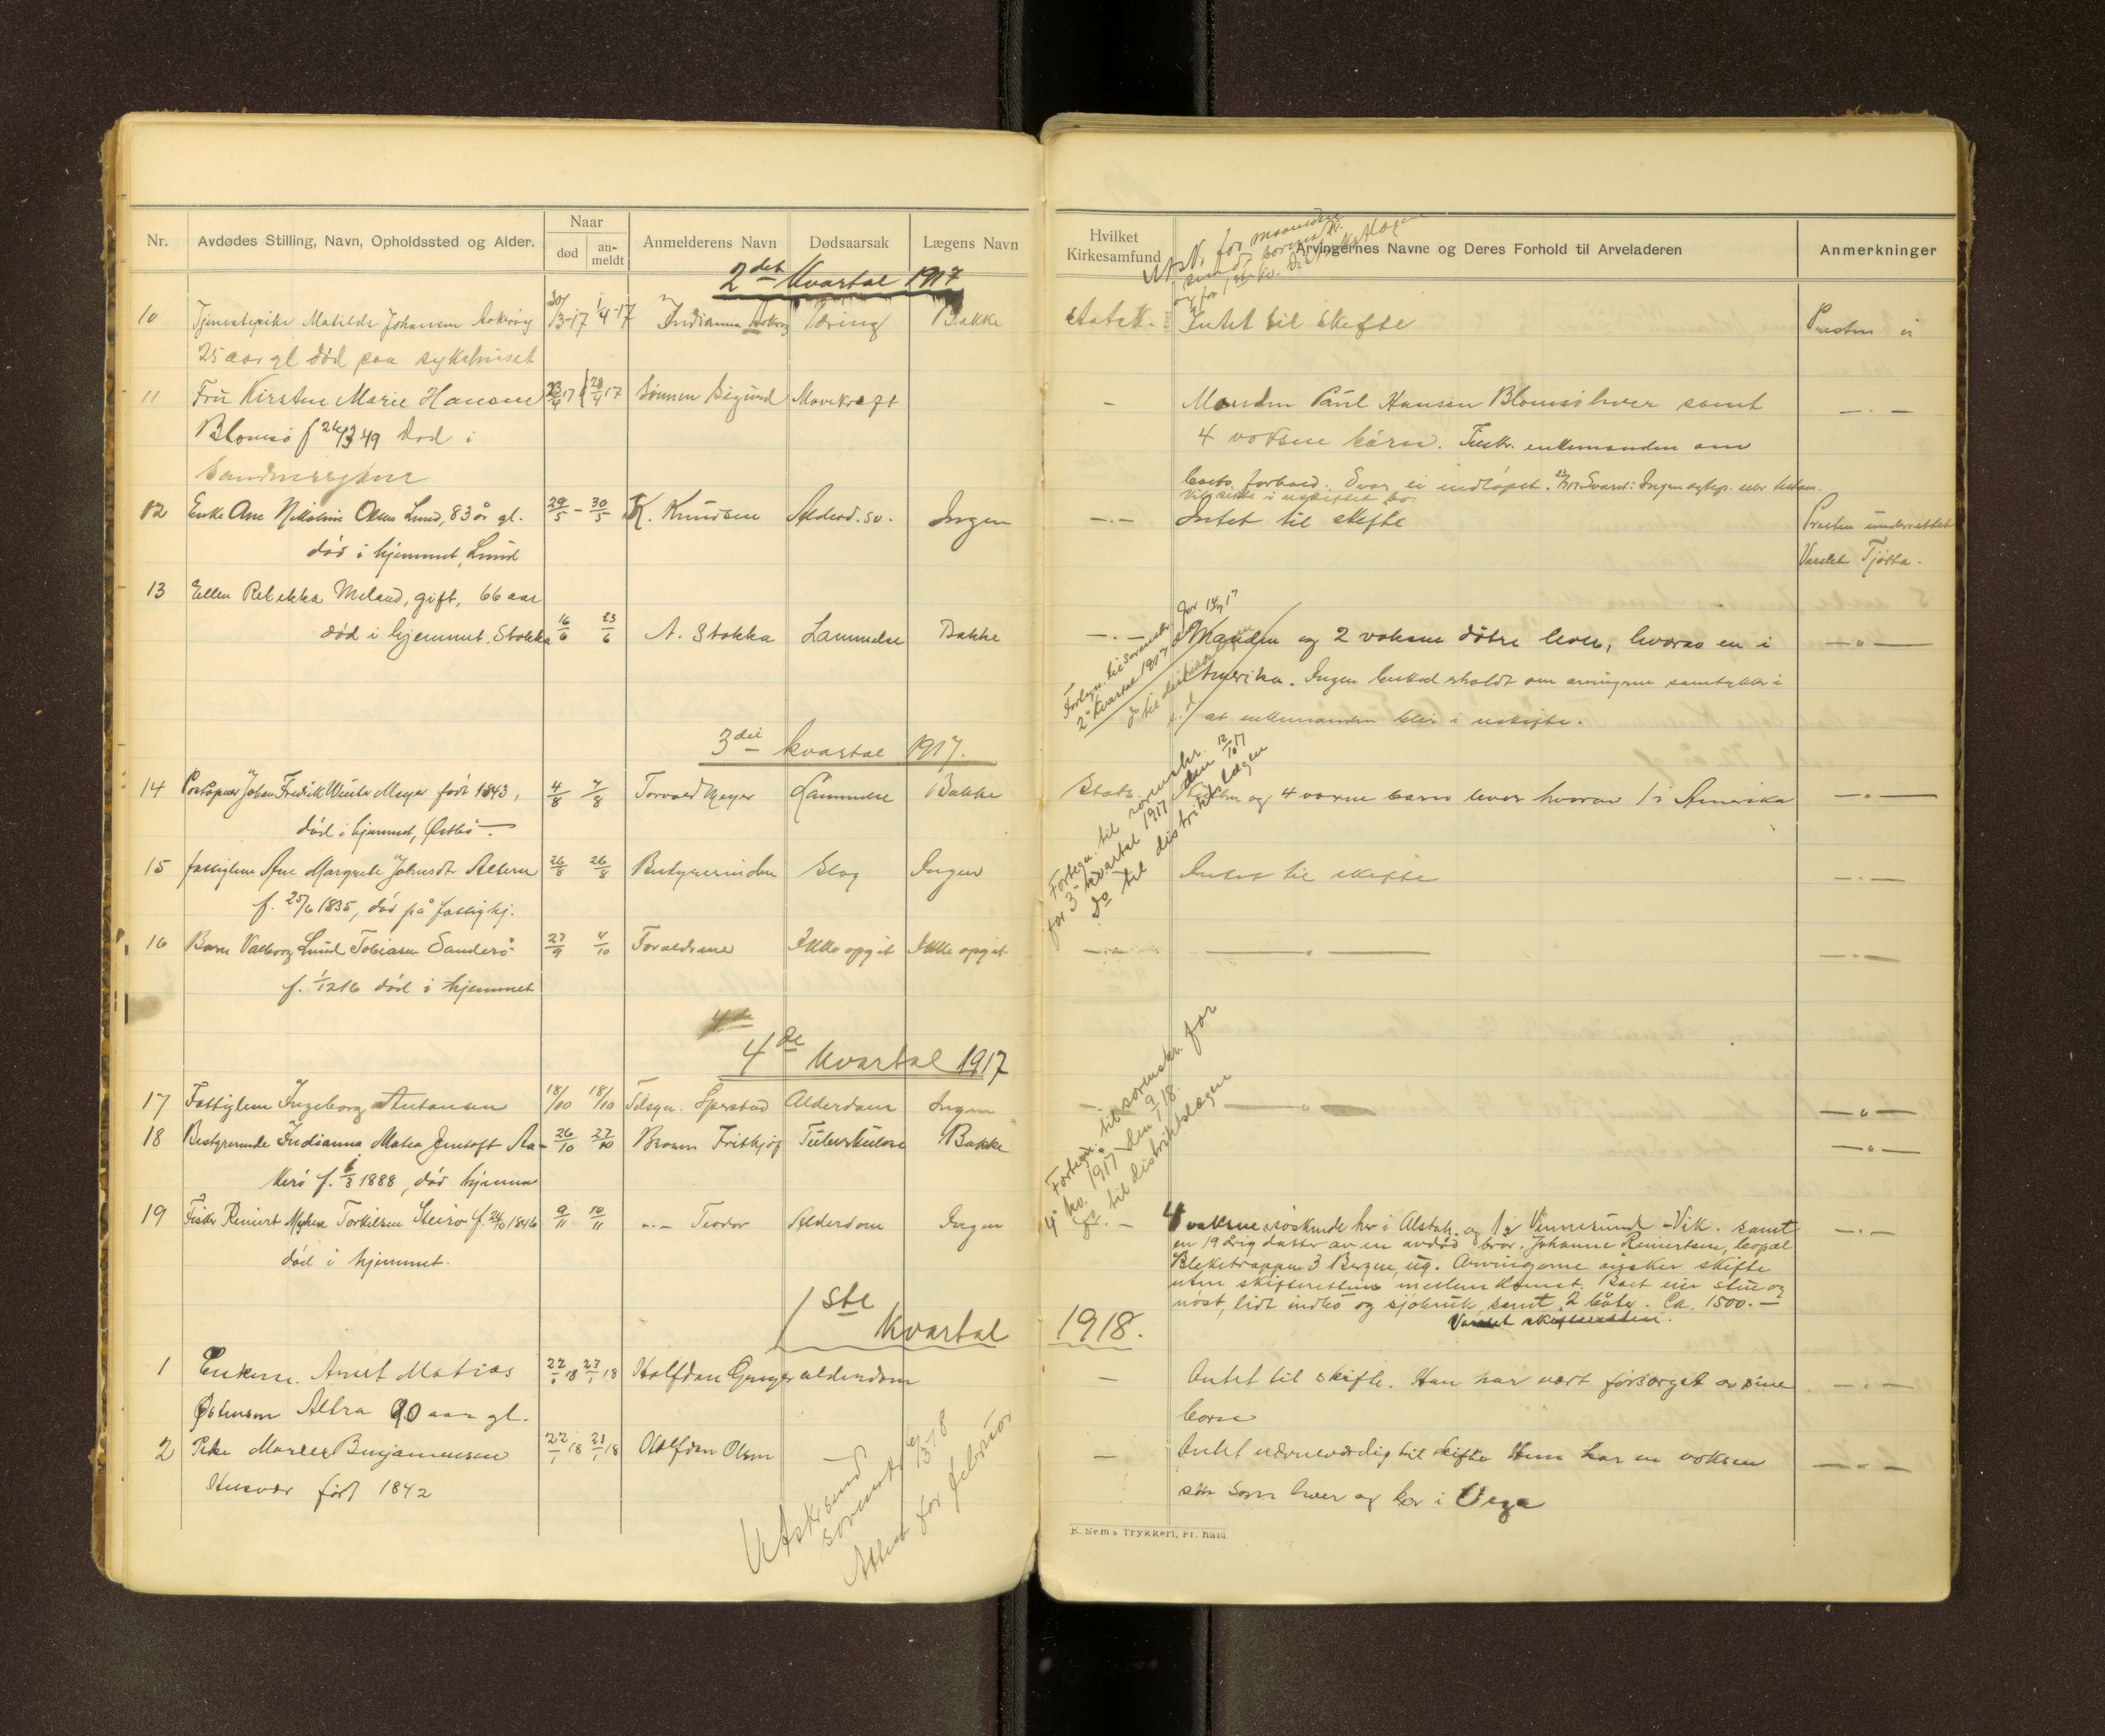 Nr.
Avdødes Stilling, Navn, Opholdssted og Alder.
Naar
død
an-
meldt
Anmelderens Navn
Dødsaarsak
Lægens Navn
2det Kvartal 1917
10 Tjenestepike Matilde Johansen 30/3-17 1/4-17 Indianna Tæring Bakke
25 aar gl død paa sykehuset
11 Fru Kirsten Marie Hansen 23/4 17 28/4 17 Sønnen Sigurd Mavekræft
Blomsø f 26/3 49 død i
Sandnessjøen
12 Enke Ane Nikoline Olsen Lund, 83 år gl. 29/5 - 30/5 K. Knudsen Alderd. sv. Ingen
død i hjemmet, Lund
13 Ellen Rebekka Meland, gift, 66 aar
død i hjemmet. Stokka 16/6 23/6 A. Stokka Lammelse Bakke
3die kvartal 1917.
14 Postaapner Johan Fredrik Winter Meyer født 1843, 4/8 7/8 Torvald Meyer Lammelse Bakke
død i hjemmet,
15 fattiglem Ane Margrete Johnsdt. 26/8 26/8 Bestyrerinden Slag Ingen
f. 25/6 1835, død på fattighj.
16 Barn Valborg Lund Tobiasen Sanderø 27/9 4/10 Forældrene Ikke opgit Ikke opgit
f. 1/12 16 død i hjemmet
4de Kvartal 1917
17 Fattiglem Ingeborg Antonsen 18/10 18/10 Tilsyn. Alderdom Ingen
18 Bestyrerinde Indianna Jentoft Aa- 26/10 27/10 Broren Fridthjof Tuberkulose Bakke
kerø f. 1/3 1888, død hjemme
19 Fisker Reinert Torkilsen f. 24/10 1846 9/11 10/11 -"- Teodor Alderdom Ingen
død i hjemmet.
1ste Kvartal
1 Enkem. Anut Matias 22/1 18 23/1 18 Halfdan alderdom
Østensen Altra 90 aar gl.
2 Pike Benjaminsen 22/1 18 23/1 18 Halfdan Olsen —
Husvær født 1842
Utskr. send
sorenskr.
Attest for februar
Hvilket
Kirkesamfund
Arvingernes Navne og Deres Forhold til Arveladeren
Anmerkninger
Statsk. Intet til skifte Presten
Manden Paul Hansen Blomsø lever samt
4 voksne børn. Tilskr. enkemanden om
boets forhold. Svar ei indløpet. Svaret: Ingen
Vil sitte i uskiftet bo.
Intet til skifte Presten underrettet
Varslet Tjøtta.
Fortegn. til sorenskr. for
2. Kvartal 1917
do til distriktslægen
Manden og 2 voksne døtre lever, hvorav en i
Amerika. Ingen besked erholdt om arvingerne samtykker i
at enkemanden blir i uskifte.
Fortegn. til sorenskr.
for 3. kvartal 1917 den 12/10 17
do til distriktslægen
Stats. og 4 voxne barn lever hvorav 1 i Amerika
Intet til skifte
Fortegn. til sorenskr. for
4. kv. 1917 den 9/1 18.
do til distriktslægen
4 voksne søskende her i Alstah. og 1 i Vennesund - Vik. samt
en 19 årig datter av en avdød bror. Johanne Reinertsen, bopæl
Bleketrappen 3 Bergen, ug. Arvingerne ønsker skifte
uten skifterettens mellemkomst. Boet eier stue og
nøst, lidt indbo og sjøbruk, samt 2 båter. Ca. 1500.—
Varslet skifteretten.
1918.
Intet til skifte. Han har vært forsørget av sine
børn
Intet nævneværdig til skifte Hun har en voksen
søn som lever og bor i Vega
E. Sems Trykkeri, Fr.hald.